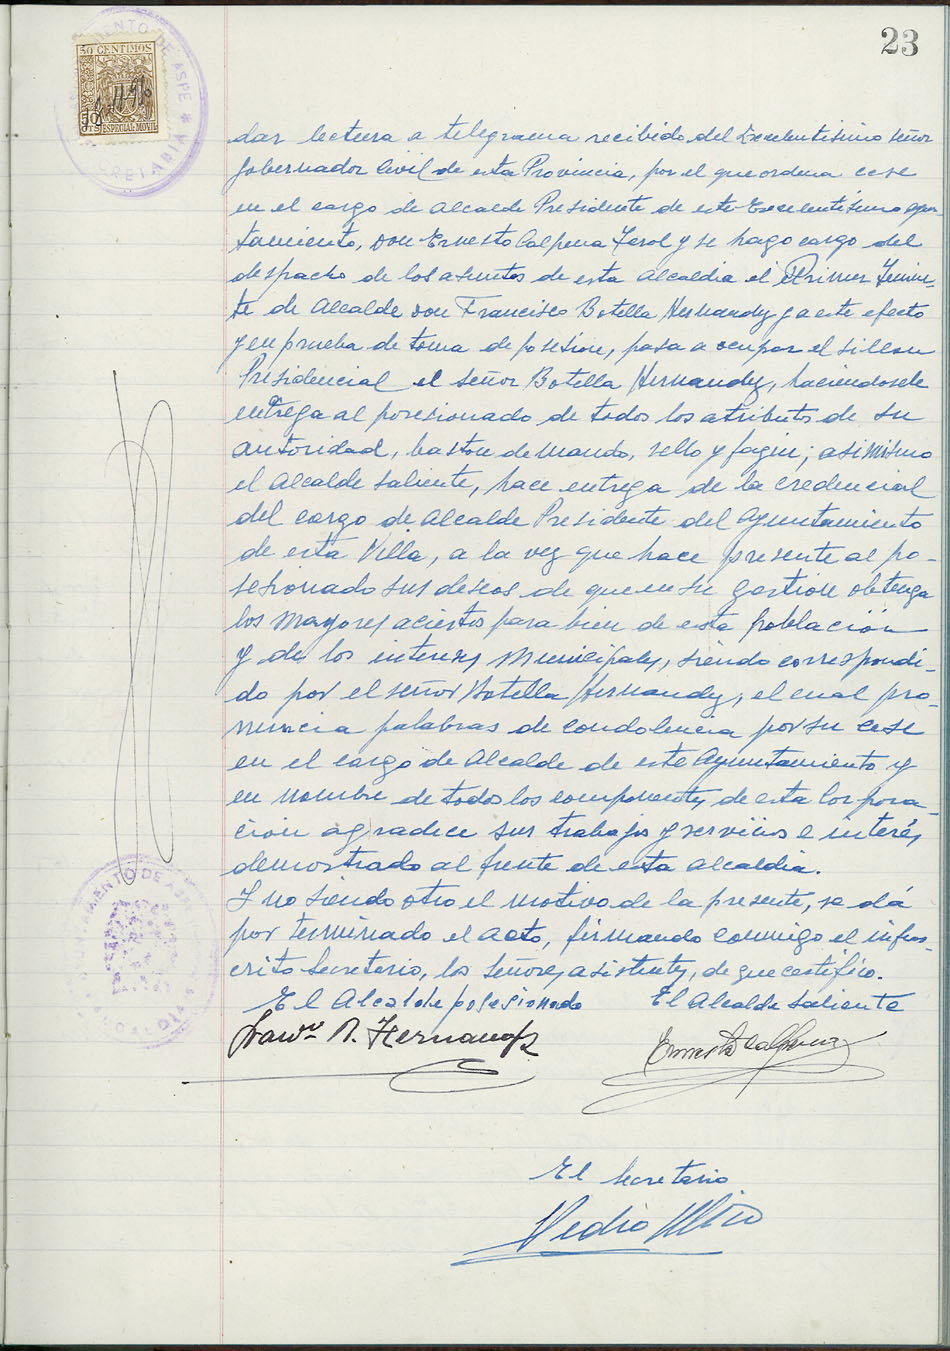 23
AYUNTAMIENTO DE ASPE * SECRETARIA *
50 CENTIMOS
ESPECIAL MOVIL
dar lectura a telegrama recibido del Excelentisimo señor
Gobernador Civil de esta Provincia, por el que ordena cese
en el cargo de Alcalde Presidente de este Excelentisimo Ayun-
tamiento, Don Ernesto Calpena Ferol y se hago cargo del
despacho de los asuntos de esta Alcaldia el Primer Tenien-
te de Alcalde Don Francisco Botella Hernandez y a este efecto
y en prueba de toma de posesion, pasa a ocupar el sillon
Presidencial el señor Botella Hernandez, haciendosele
entrega al posesionado de todos los atributos de su
autoridad, baston de mando, sello y fagin; asimismo
el Alcalde saliente, hace entrega de la credencial
del cargo de Alcalde Presidente del Ayuntamiento
de esta Villa, a la vez que hace presente al po-
sesionado sus deseos de que en su gestion obtenga
los mayores aciertos para bien de esta poblacion
y de los intereses Municipales, siendo correspondi-
do por el señor Botella Hernandez, el cual pro-
nuncia palabras de condolencia por su cese
en el cargo de Alcalde de este Ayuntamiento y
en nombre de todos los componentes de esta Corpora-
cion agradece sus trabajos y servicios e interés
demostrado al frente de esta Alcaldia.
Y no siendo otro el motivo de la presente, se dá
por terminado el acto, firmando conmigo el infras-
crito Secretario, los señores asistentes, de que certifico.
El Alcalde posesionado El Alcalde saliente
Franco. B. Hernandez Ernesto Calpena
AYUNTAMIENTO DE ASPE ALCALDIA
El Secretario
Pedro